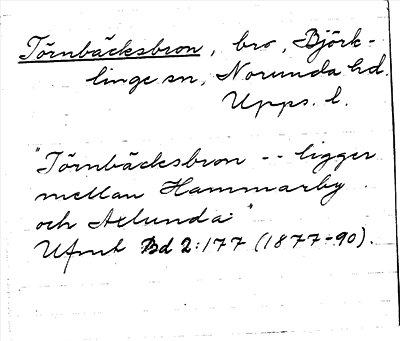 Törnbäcksbron, bro, Björk-
linge sn, Norunda hd.
Upps. l.
"Törnbäcksbron -- ligger
mellan Hammarby
och Axlunda"
Ufmt Bd 2:177 (1877-90).